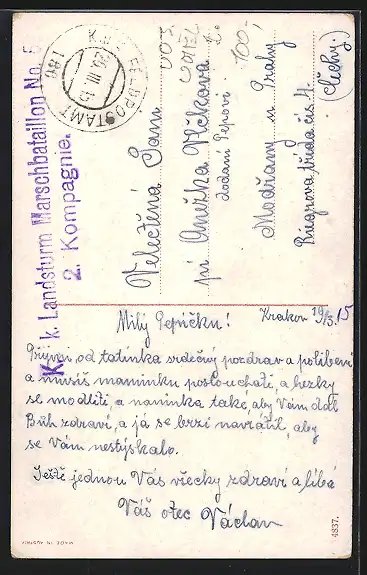 K. u. K. FELDPOSTAMT
20. III. 15
181
K. k. Landsturm Marschbataillon No. 5
2. Kompagnie.
100,-
Velectěná Paní
pí Anežka Vlčkova
dodání Pepovi
Modřany u Prahy
Riegrova třída čís 17.
(Čechy)
Milý Pepíčku! Krakov 19/3.15
Přijmi od tatínka srdečný pozdrav a políbení
a musíš maminku poslouchati, a hezky
se modliti, a naninka také, aby Vám dal
Bůh zdraví, a já se brzi navrátil, aby
se Vám nestýskalo.
Ještě jednou Vás všecky zdraví a líbá
Váš otec Václav
4837.